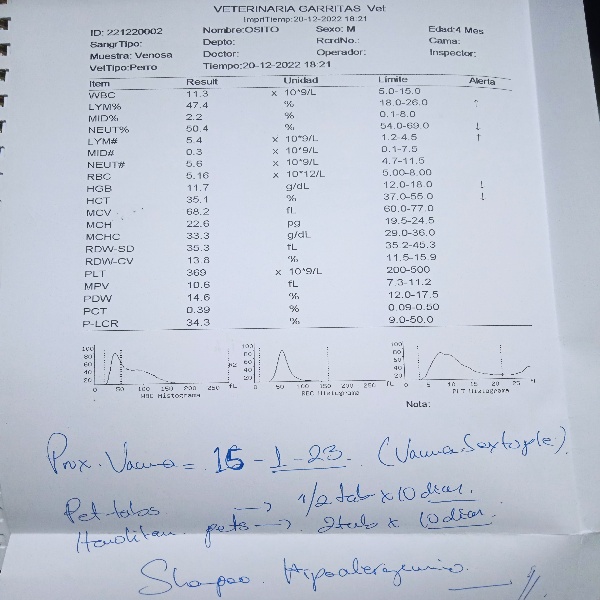 VETERINARIA GARRITAS Vet
ImprTiempo:20-12-2022 18:21
ID: 221220002 Nombre:OSITO Sexo: M Edad:4 Mes
SangrTipo: Depto: RcrdNo.: Cama:
Muestra: Venosa Doctor: Operador: Inspector:
VetTipo:Perro Tiempo:20-12-2022 18:21
Item Result Unidad Limite Alerta
WBC 11.3 x 10^9/L 5.0-15.0
LYM% 47.4 % 18.0-26.0 ↑
MID% 2.2 % 0.1-8.0
NEUT% 50.4 % 54.0-69.0 ↓
LYM# 5.4 x 10^9/L 1.2-4.5 ↑
MID# 0.3 x 10^9/L 0.1-7.5
NEUT# 5.6 x 10^9/L 4.7-11.5
RBC 5.16 x 10^12/L 5.00-8.00
HGB 11.7 g/dL 12.0-18.0 ↓
HCT 35.1 % 37.0-55.0 ↓
MCV 68.2 fL 60.0-77.0
MCH 22.6 pg 19.5-24.5
MCHC 33.3 g/dL 29.0-36.0
RDW-SD 35.3 fL 35.2-45.3
RDW-CV 13.8 % 11.5-15.9
PLT 369 x 10^9/L 200-500
MPV 10.6 fL 7.3-11.2
PDW 14.6 % 12.0-17.5
PCT 0.39 % 0.09-0.50
P-LCR 34.3 % 9.0-50.0
100 80 60 40 20
0 50 100 150 200 250 fL
WBC Histograma
100 80 60 40 20
0 50 100 150 200 250 fL
RBC Histograma
100 80 60 40 20
0 5 10 15 20 25
PLT Histograma
Nota:
Prox. Vacuna = 15-1-23. (Vacuna Sextuple).
Pet-tabs → 1/2 tab x 10 dias.
pets → 2tab x 10 dias.
Shampoo Hipoalergenico.